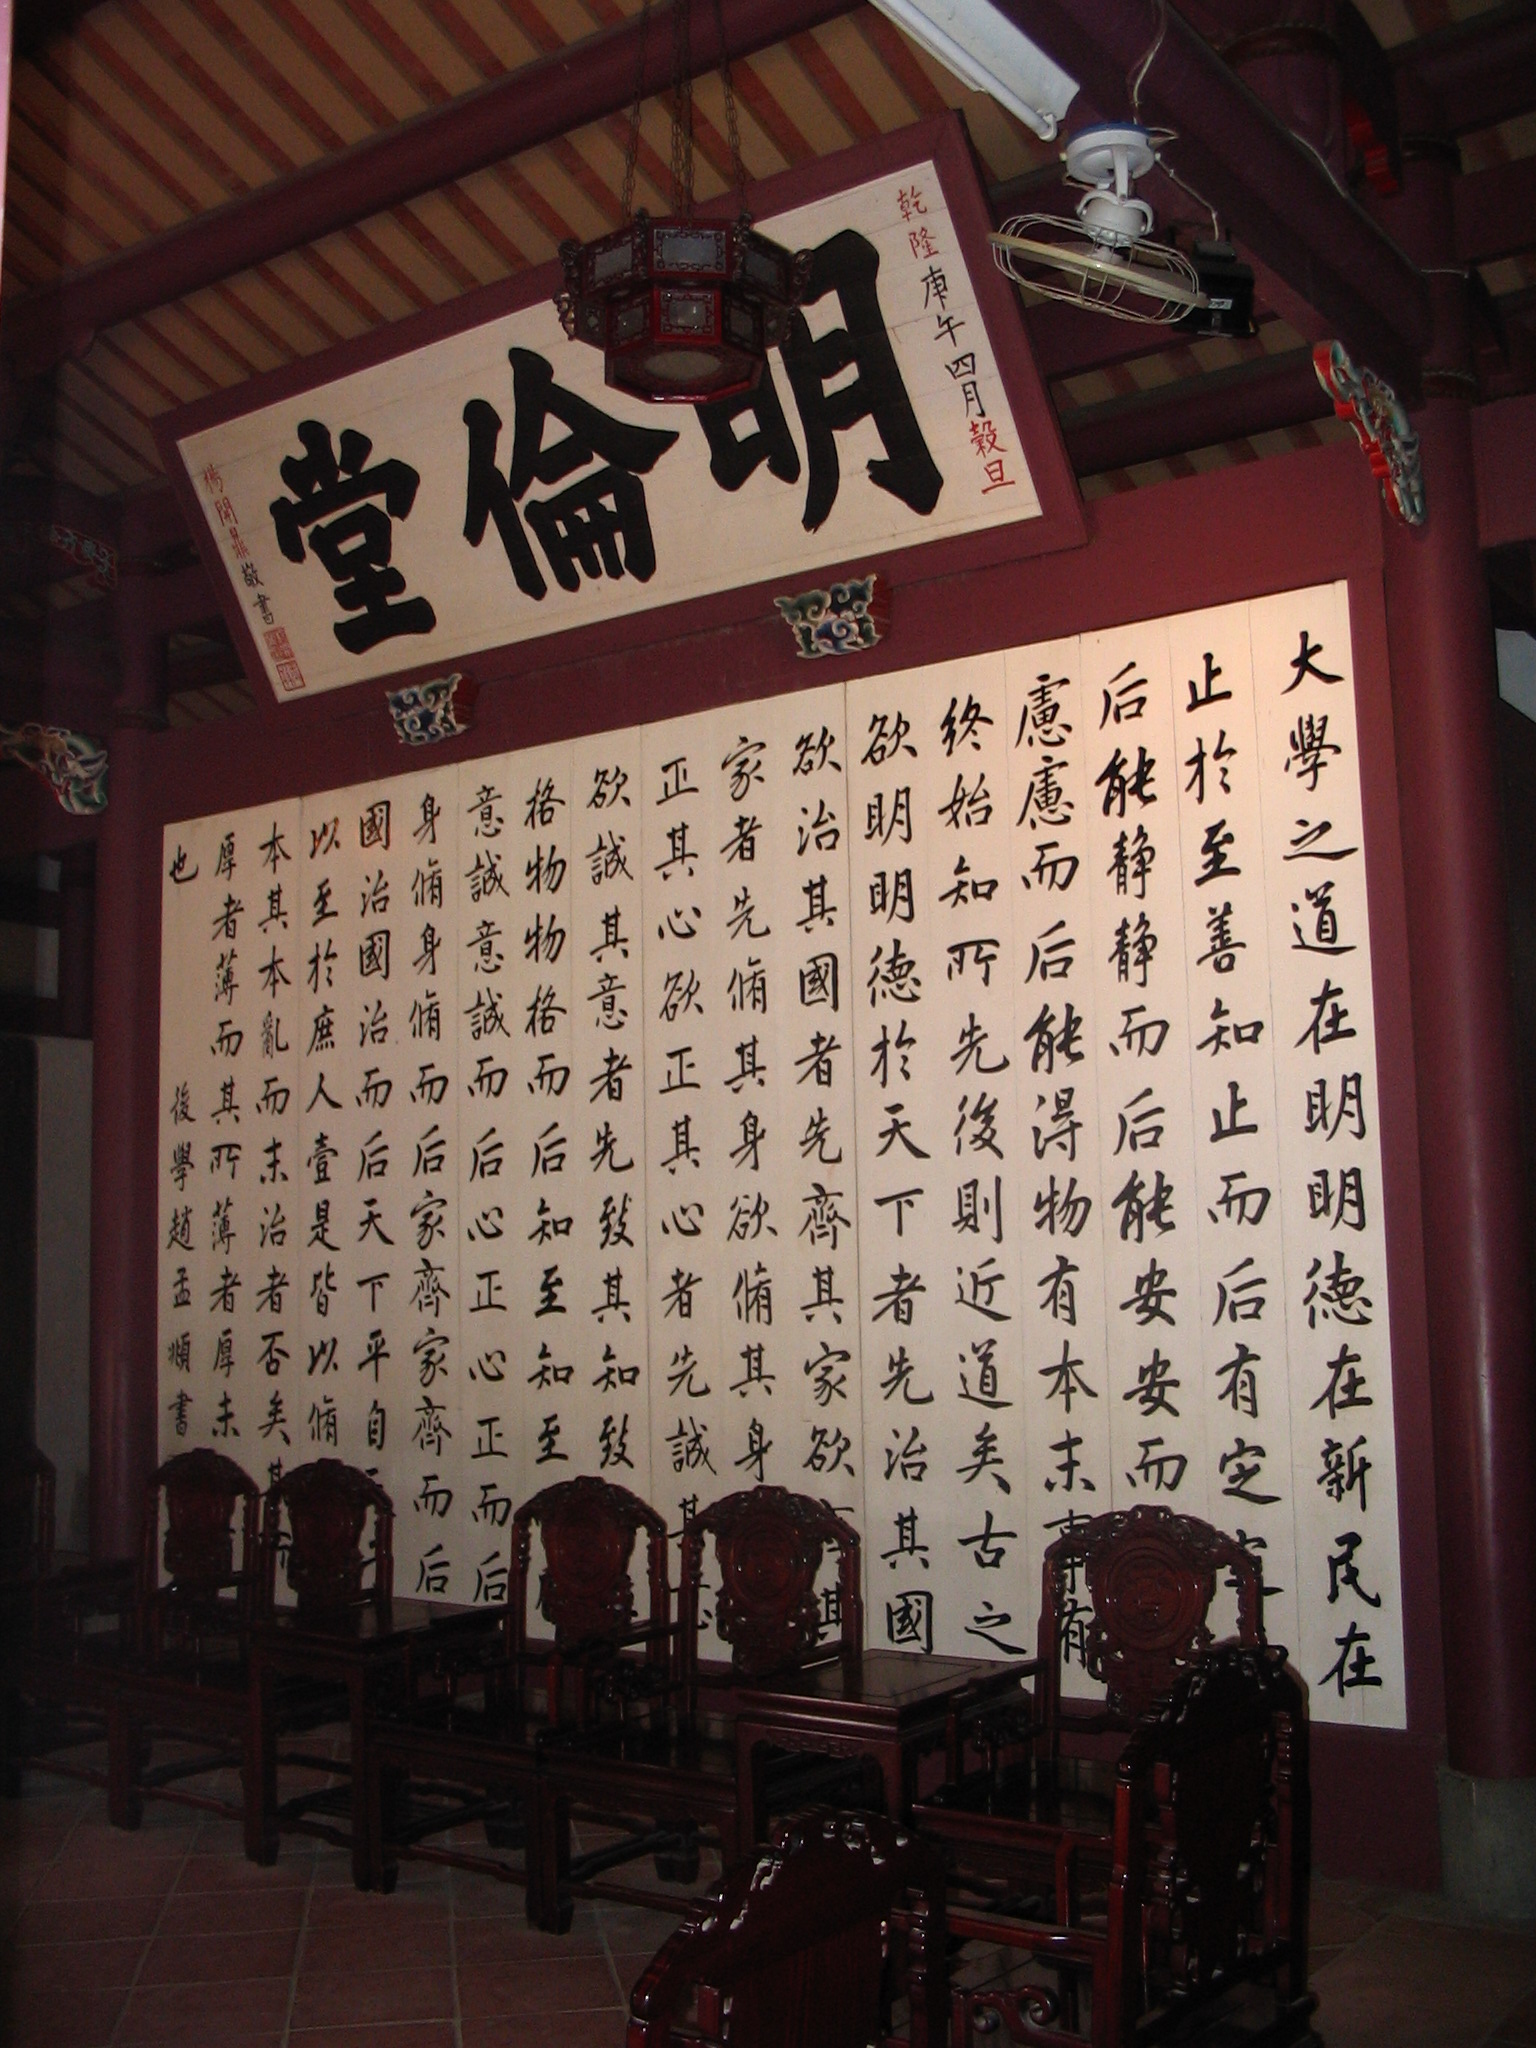 乾隆庚午四月穀旦
明倫堂
楊開鼎敬書
大學之道在明明德在新民在
止於至善知止而后有定定
后能静静而后能安安而
慮慮而后能得物有本末事有
終始知所先後則近道矣古之
欲明明德於天下者先治其國
欲治其國者先齊其家欲其
家者先脩其身欲脩其身
正其心欲正其心者先誠其意
欲誠其意者先致其知致
格物物格而后知至知至
意誠意誠而后心正心正而后
身脩身脩而后家齊家齊而后
國治國治而后天下平自
以至於庶人壹是皆以脩
本其本亂而末治者否矣其所
厚者薄而其所薄者厚未
也 後學趙孟頫書